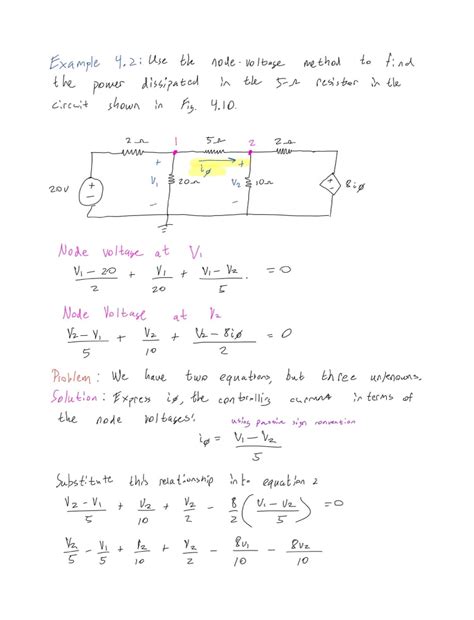 Example 4.2: Use the node-voltage method to find
the power dissipated in the 5-Ω resistor in the
circuit shown in Fig. 4.10.
2Ω 1 5Ω 2 2Ω
+ iø +
20V + − V₁ 20Ω V₂ 10Ω + − 8iø
− −
Node voltage at V₁
V₁ − 20 / 2 + V₁ / 20 + V₁ − V₂ / 5 = 0
Node Voltage at V₂
V₂ − V₁ / 5 + V₂ / 10 + V₂ − 8iø / 2 = 0
Problem: We have two equations, but three unknowns.
Solution: Express iø, the controlling current in terms of
the node voltages! using passive sign convention
iø = V₁ − V₂ / 5
Substitute this relationship into equation 2
V₂ − V₁ / 5 + V₂ / 10 + V₂ / 2 − 8 / 2 ( V₁ − V₂ / 5 ) = 0
V₂ / 5 − V₁ / 5 + V₂ / 10 + V₂ / 2 − 8V₁ / 10 − 8V₂ / 10